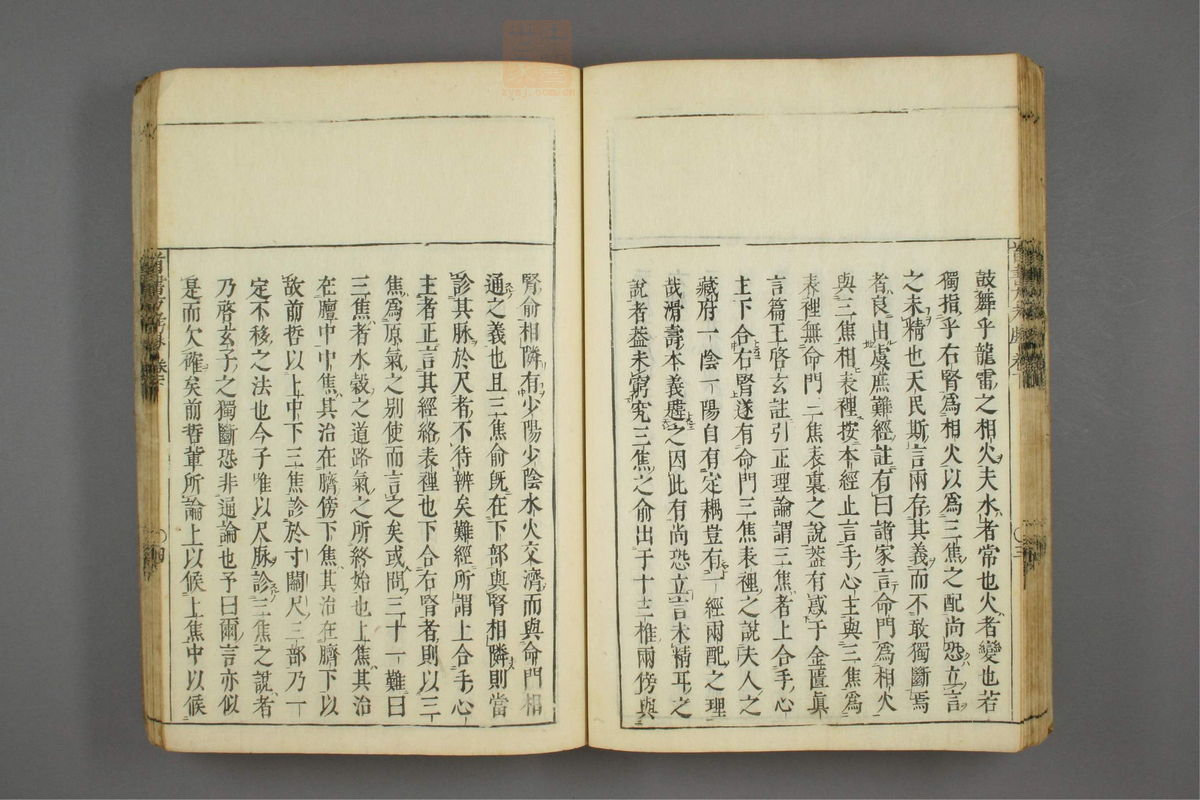 鼓舞乎龍雷之相火夫水者常也火者變也若
獨指乎右腎為相火以為三焦之配尚恐立言
之未精也天民斯言兩存其義而不敢獨斷焉
者良由虞庶難經註有曰諸家言命門為相火
與三焦相表裡按本經止言手心主與三焦為
表裡無命門三焦表裏之說葢有惑于金匱真
言篇王啓玄註引正理論謂三焦者上合手心
主下合右腎遂有命門三焦表裡之說夫人之
藏府一陰一陽自有定耦豈有一經兩配之理
哉滑壽本義
之因此有尚恐立言未精耳之
說者葢未窮究三焦之俞出于十三椎兩傍與
腎俞相隣有少陽少陰水火交濟而與命門相
通之義也且三焦俞旣在下部與腎相隣則當
診其脉於尺者不待辨矣難經所謂上合手心
主者正言其經絡表裡也下合右腎者則以三
焦為原氣之别使而言之矣或問三十一難曰
三焦者水穀之道路氣之所終始也上焦其治
在膻中中焦其治在臍傍下焦其治在臍下以
故前哲以上中下三焦診於寸關尺三部乃一
定不移之法也今子唯以尺脉診三焦之說者
乃啓玄子之獨斷恐非通論也予曰爾言亦似
是而欠確矣前哲軰所論上以候上焦中以候